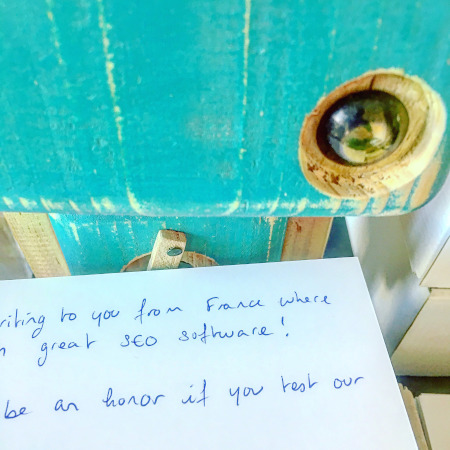 riting to you from France where
great SEO software!
be an honor if you test our